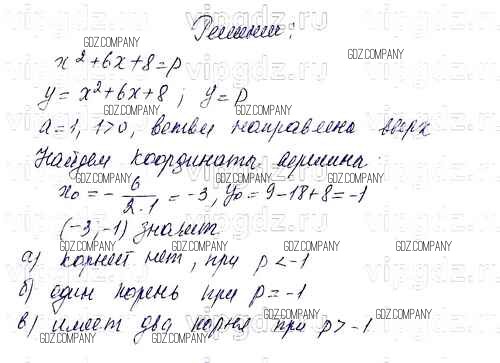 Решение:
x² + 6x + 8 = p
y = x² + 6x + 8 ; y = p
a = 1, 1 > 0, ветви направлена вверх
Найдем координата вершина:
x₀ = - 6/2·1 = -3, y₀ = 9 - 18 + 8 = -1
(-3; -1) значит
а) корней нет, при p < -1
б) один корень при p = -1
в) имеет два корня при p > -1